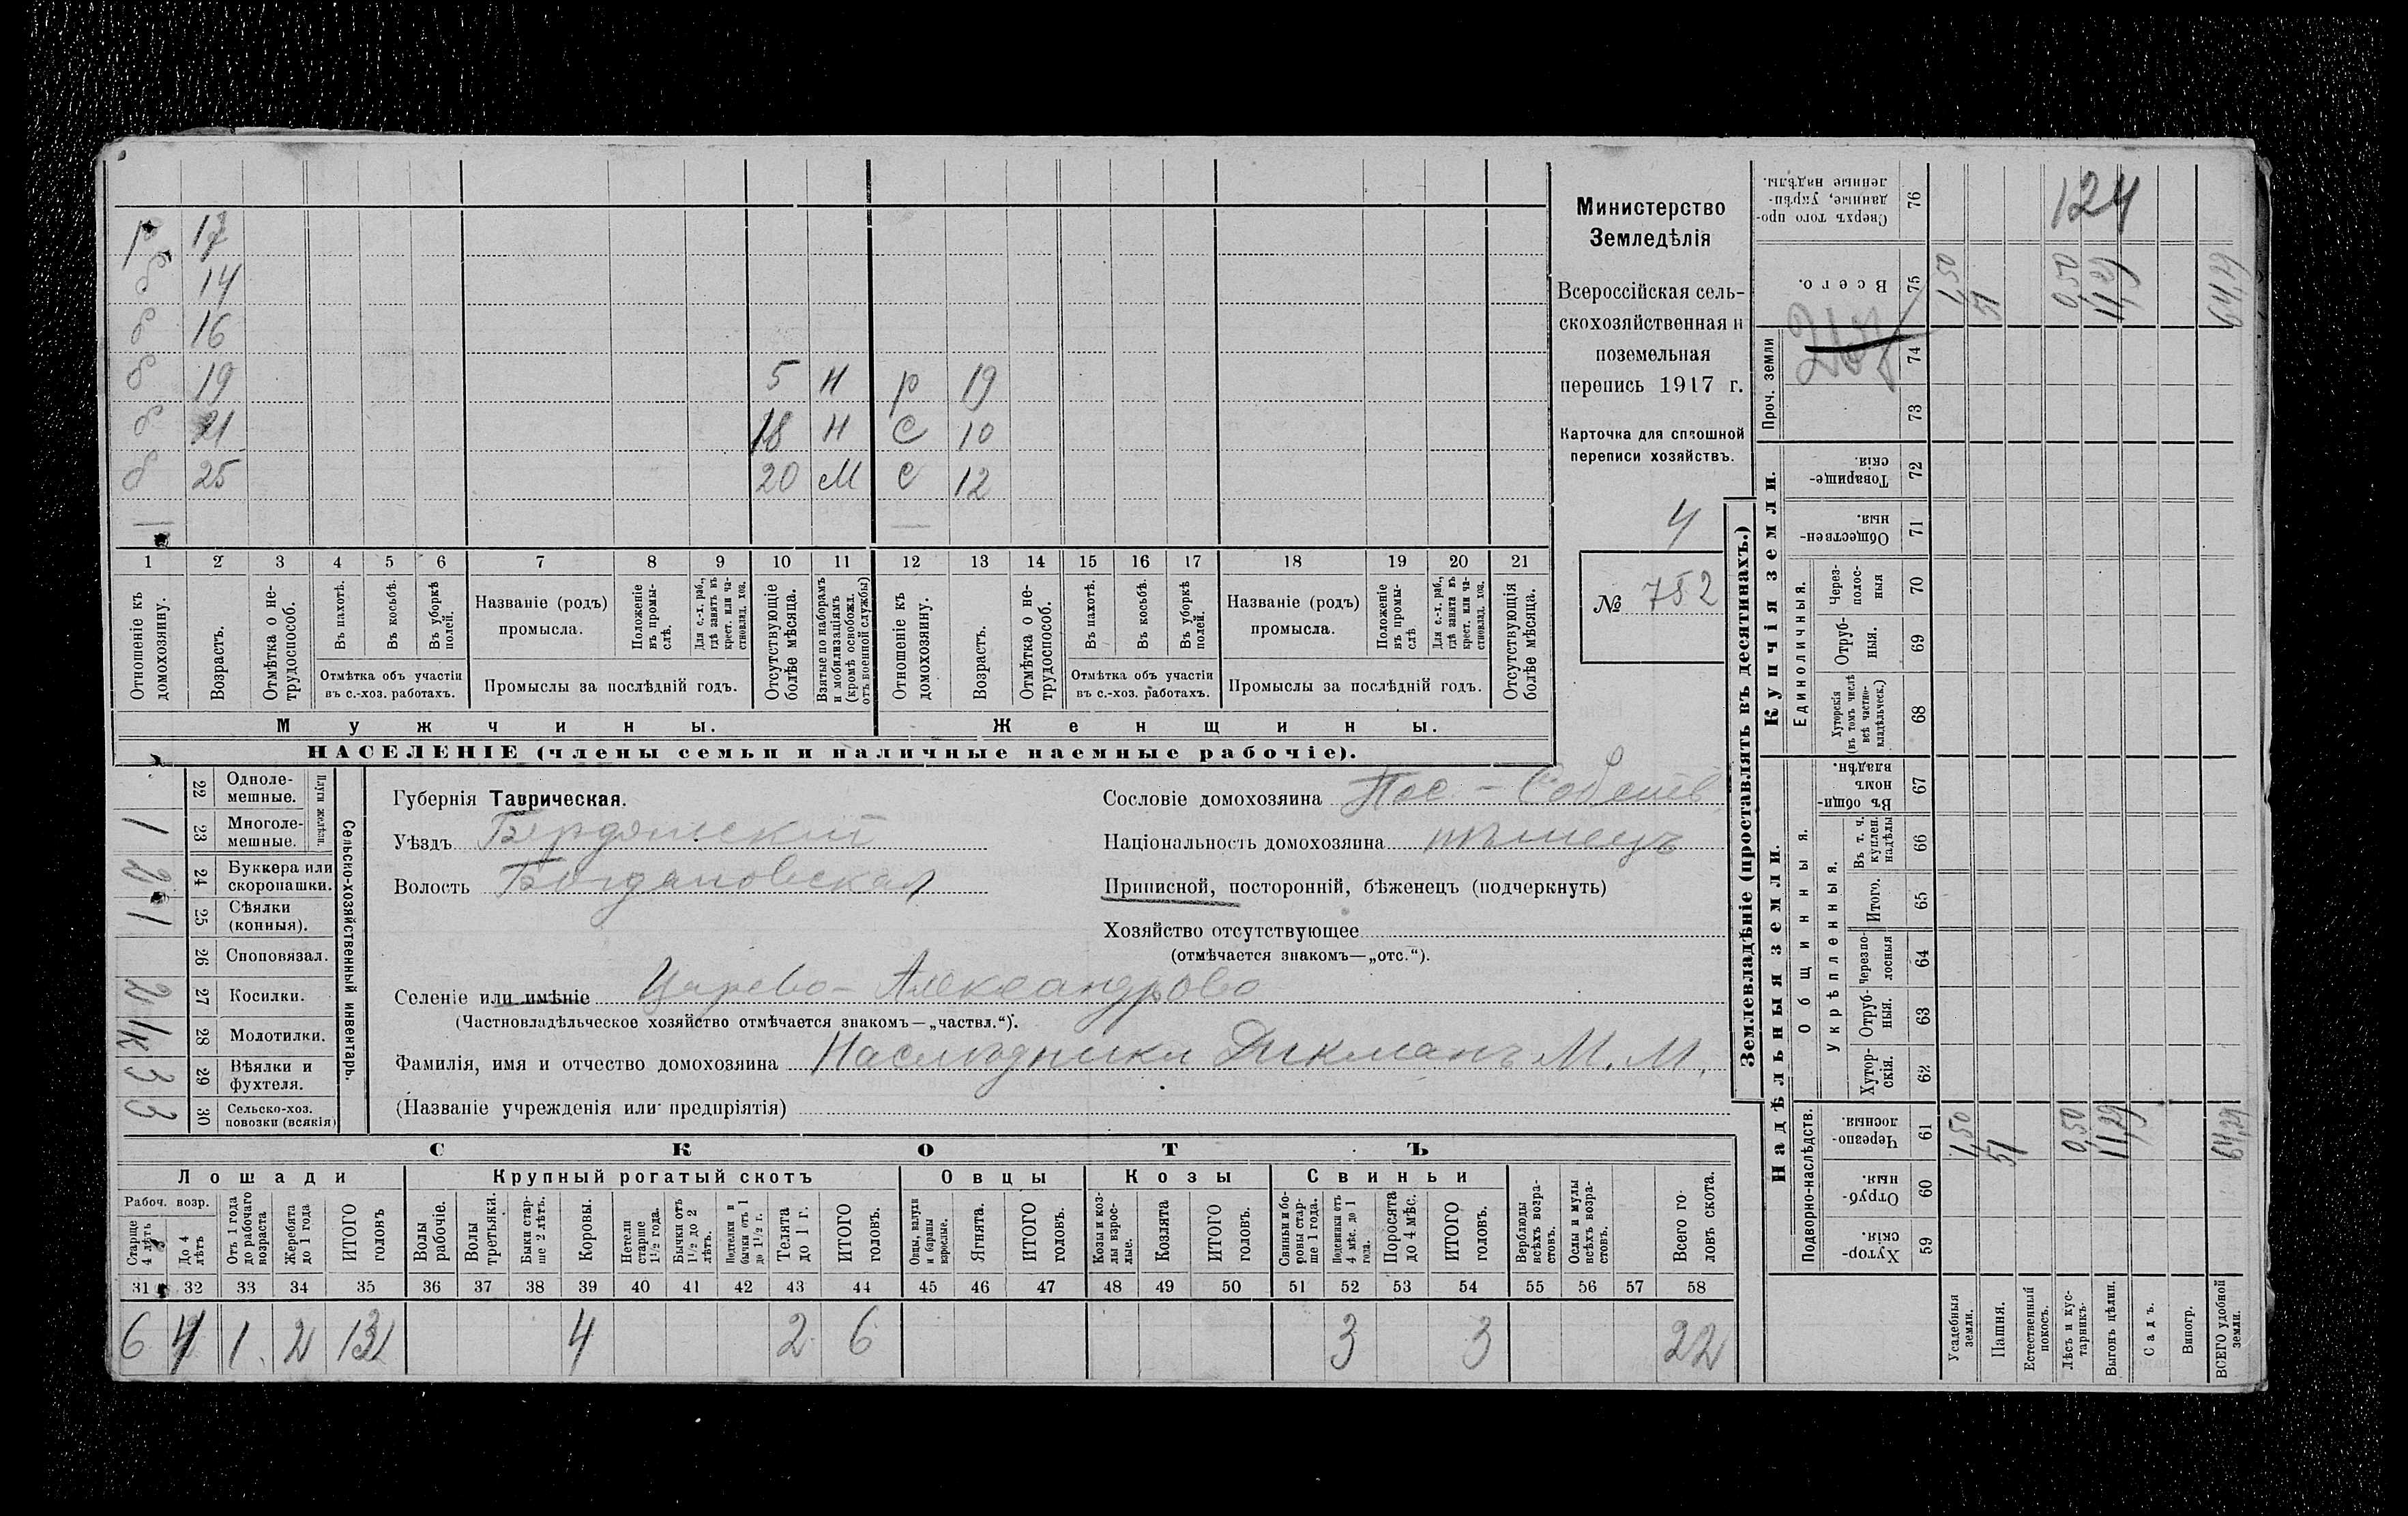 р 17
б 14
б 16
б 19 5 Н р 19
б 21 18 Н С 10
б 25 20 М С 12
1 2 3 4 5 6 7 8 9 10 11 12 13 14 15 16 17 18 19 20 21
Отношеніе къ домохозяину.
Возрастъ.
Отмѣтка о не-трудоспособ.
Въ пахотѣ.
Въ косьбѣ.
Въ уборкѣ полей.
Отмѣтка объ участіи въ с.-хоз. работахъ.
Названіе (родъ) промысла.
Положеніе въ промы-слѣ.
Для с.-х. раб., гдѣ занятъ въ крест. или ча-стновлад. хоз.
Промыслы за послѣдній годъ.
Отсутствующіе болѣе мѣсяца.
Взятые по наборамъ и мобилизаціямъ (кромѣ освобожд. отъ военной службы)
Отношеніе къ домохозяину.
Возрастъ.
Отмѣтка о не-трудоспособ.
Въ пахотѣ.
Въ косьбѣ.
Въ уборкѣ полей.
Отмѣтка объ участіи въ с.-хоз. работахъ.
Названіе (родъ) промысла.
Положеніе въ промы-слѣ
Для с.-х. раб., гдѣ занята въ крест. или ча-стновлад. хоз.
Промыслы за послѣдній годъ.
Отсутствующія болѣе мѣсяца.
Мужчины. Женщины.
НАСЕЛЕНІЕ (члены семьи и наличные наемные рабочіе).
Министерство
Земледѣлія
Всероссійская сель-
скохозяйственная и
поземельная
перепись 1917 г.
Карточка для сплошной
переписи хозяйствъ.
4
№ 752
22 Одноле-мешные.
1 23 Многоле-мешные.
Плуги желѣзн.
2 24 Буккера или скоропашки.
1 25 Сѣялки (конныя).
26 Сноповязал.
2 27 Косилки.
1к 28 Молотилки.
3 29 Вѣялки и фухтеля.
3 30 Сельско-хоз. повозки (всякія)
Сельско-хозяйственный инвентарь.
Губернія Таврическая.
Уѣздъ Бердянскій
Волость Богдановская
Сословіе домохозяина Пос.-Собств.
Національность домохозяина нѣмецъ
Приписной, посторонній, бѣженецъ (подчеркнуть)
Хозяйство отсутствующее
(отмѣчается знакомъ—„отс.“).
Селеніе или имѣніе Царево-Александрово
(Частновладѣльческое хозяйство отмѣчается знакомъ—„частвл.“).
Фамилія, имя и отчество домохозяина Наслѣдники Дикманъ М. М.
(Названіе учрежденія или предпріятія)
СКОТЪ
Лошади Крупный рогатый скотъ Овцы Козы Свиньи
Рабоч. возр.
Старше 4 лѣтъ
До 4 лѣтъ
Отъ 1 года до рабочаго возраста
Жеребята до 1 года
ИТОГО головъ
Волы рабочіе.
Волы третьяки.
Быки стар-ше 2 лѣтъ.
Коровы.
Нетели старше 1 1/2 года.
Бычки отъ 1 1/2 до 2 лѣтъ.
Подтелки и бычки отъ 1 до 1 1/2 г.
Телята до 1 г.
ИТОГО головъ.
Овцы, валухи и бараны взрослые.
Ягнята.
ИТОГО головъ.
Козы и коз-лы взрос-лые.
Козлята
ИТОГО головъ.
Свиньи и бо-ровы стар-ше 1 года.
Подсвинки отъ 4 мѣс. до 1 года.
Поросята до 4 мѣс.
ИТОГО головъ.
Верблюды всѣхъ возра-стовъ.
Ослы и мулы всѣхъ возра-стовъ.
Всего го-ловъ скота.
31 32 33 34 35 36 37 38 39 40 41 42 43 44 45 46 47 48 49 50 51 52 53 54 55 56 57 58
6 4 1 2 13 4 2 6 3 3 22
Землевладѣніе (проставлять въ десятинахъ.)
Сверхъ того про-данные, укрѣп-ленные надѣлы. 76 124
Всего. 75 1,50 51 0,50 11,29 64,29
Проч. земли 74
73
Купчія земли.
Товарище-скія. 72
Обществен-ныя. 71
Единоличныя.
Через-полос-ныя 70
Отруб-ныя. 69
Хуторскія (въ томъ числѣ всѣ частно-владѣльческ.) 68
Надѣльныя земли.
Общинныя.
Въ общи-номъ владѣн. 67
Укрѣпленныя.
Въ т. ч. куплен. надѣлы 66
Итого. 65
Черезпо-лосныя 64
Отруб-ныя. 63
Хутор-скія. 62
Подворно-наслѣдств.
Черезпо-лосныя. 61 1,50 51 0,50 11,29 64,29
Отруб-ныя. 60
Хутор-скія. 59
Усадебныя земли.
Пашня.
Естественный покосъ.
Лѣсъ и кус-тарникъ.
Выгонъ цѣлин.
Садъ.
Виногр.
ВСЕГО удобной земли.